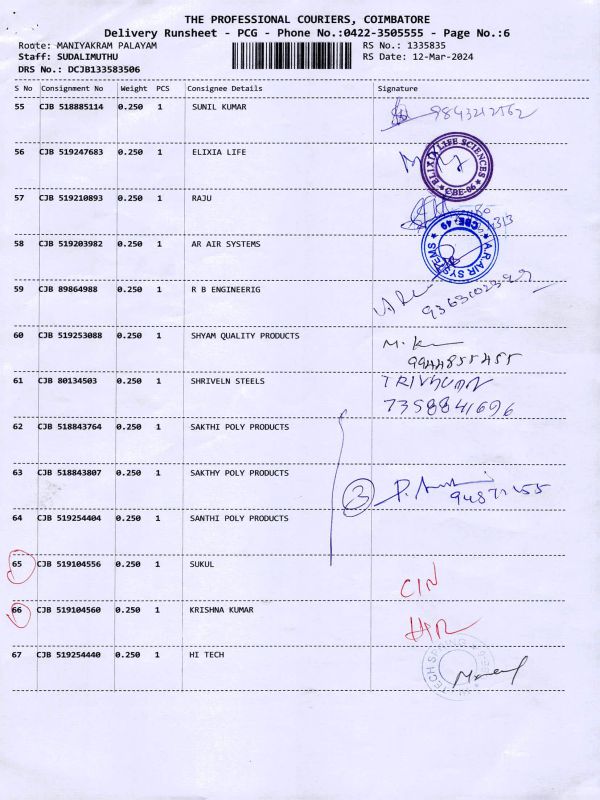 THE PROFESSIONAL COURIERS, COIMBATORE
Delivery Runsheet - PCG - Phone No.:0422-3505555 - Page No.:6
Route: MANIYAKRAM PALAYAM RS No.: 1335835
Staff: SUDALIMUTHU RS Date: 12-Mar-2024
DRS No.: DCJB133583506
S No Consignment No Weight PCS Consignee Details Signature
55 CJB 518885114 0.250 1 SUNIL KUMAR 9843212562
56 CJB 519247683 0.250 1 ELIXIA LIFE
ELIXIR LIFE SCIENCES
CBE-06
57 CJB 519210893 0.250 1 RAJU
58 CJB 519203982 0.250 1 AR AIR SYSTEMS
A.R.AIR SYSTEMS
CBE-49
59 CJB 89864988 0.250 1 R B ENGINEERIG
60 CJB 519253088 0.250 1 SHYAM QUALITY PRODUCTS M.K
9944855455
61 CJB 80134503 0.250 1 SHRIVELN STEELS
7358841696
62 CJB 518843764 0.250 1 SAKTHI POLY PRODUCTS
63 CJB 518843807 0.250 1 SAKTHY POLY PRODUCTS 3
64 CJB 519254404 0.250 1 SANTHI POLY PRODUCTS
65 CJB 519104556 0.250 1 SUKUL CIN
66 CJB 519104560 0.250 1 KRISHNA KUMAR
67 CJB 519254440 0.250 1 HI TECH